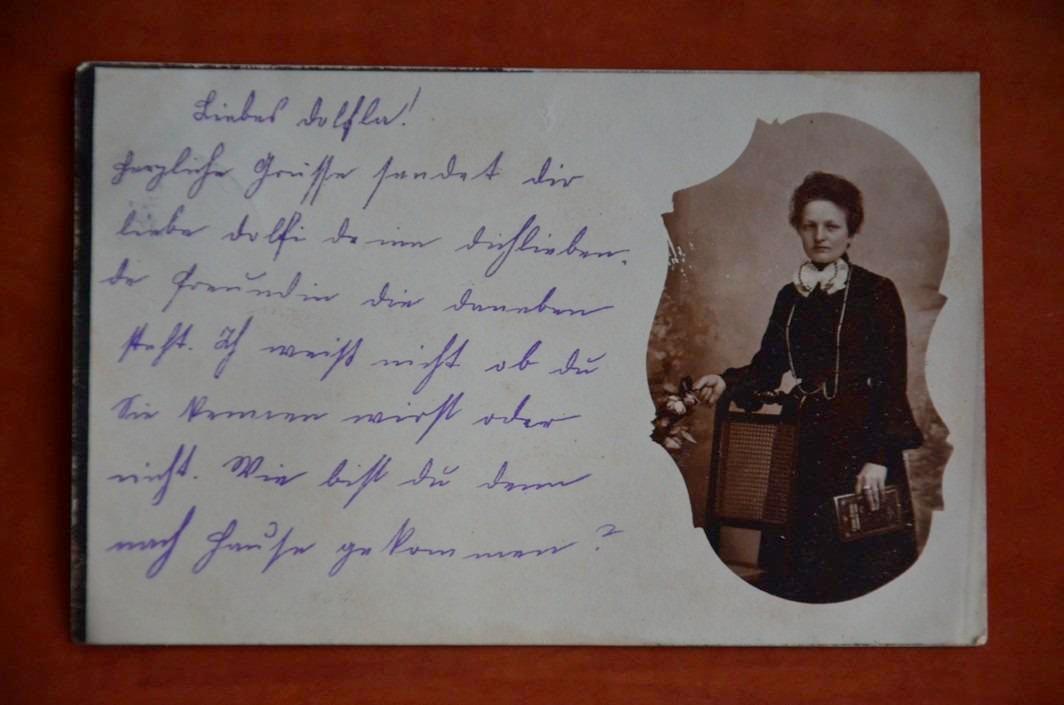 Liebes Dolfla!
Herzliche Grüsse sendet dir
liebe Dolfi deine dichlieben-
de Freundin die daneben
steht. Ich weiß nicht ob du
Sie kennen wirst oder
nicht. Wie bist du denn
nach Hause gekommen?